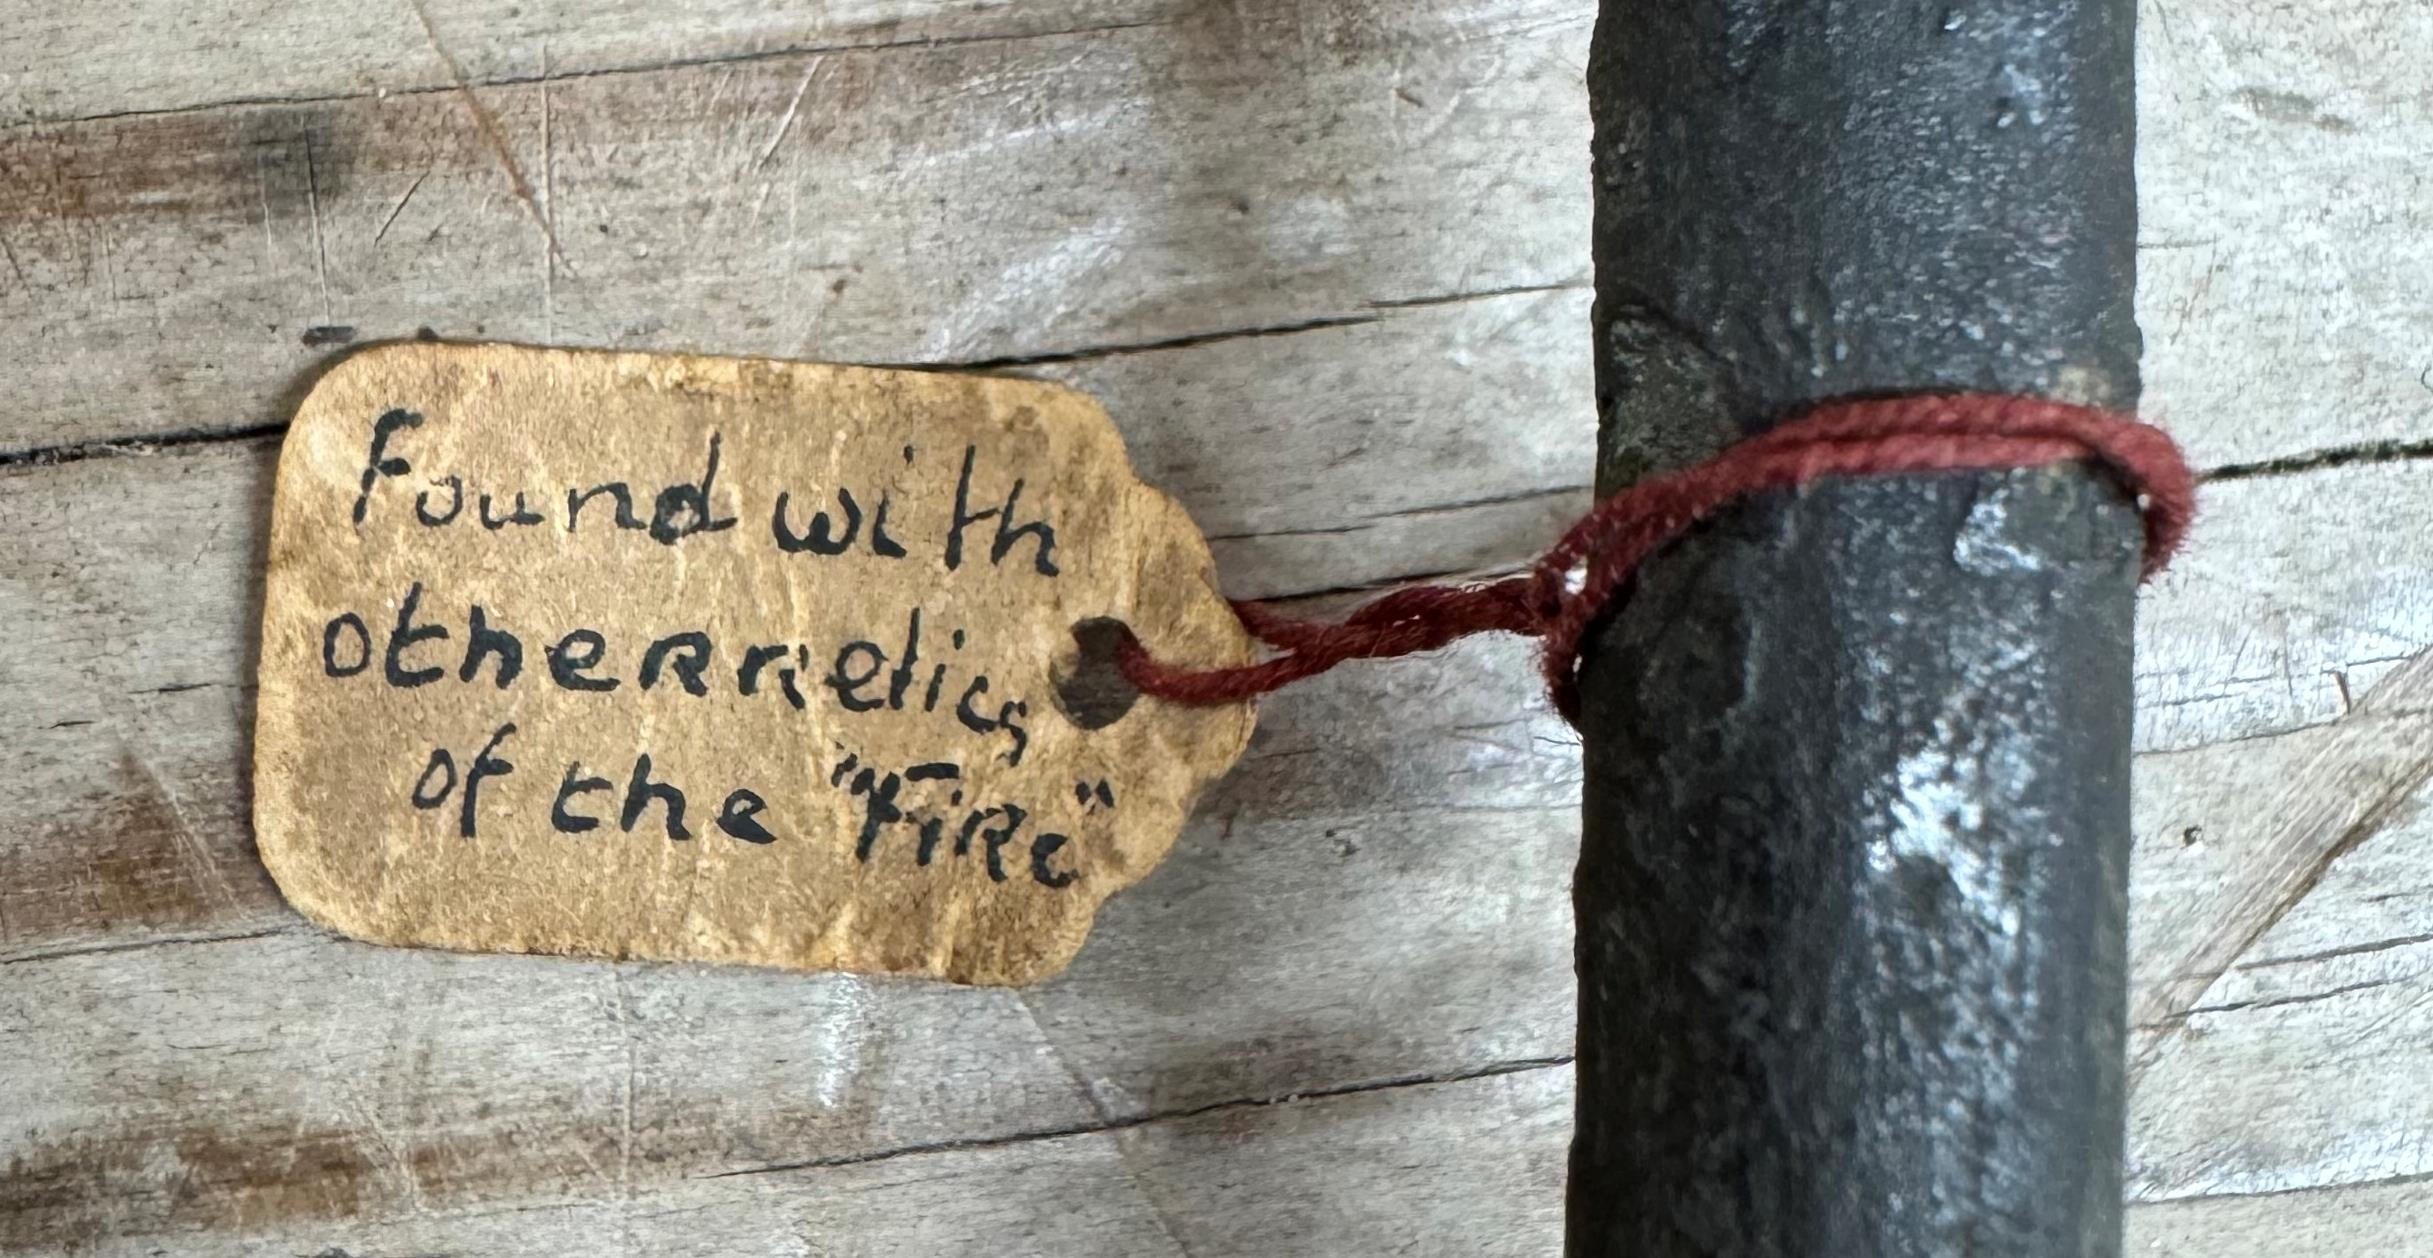 Found with
other relics
of the "Fire"